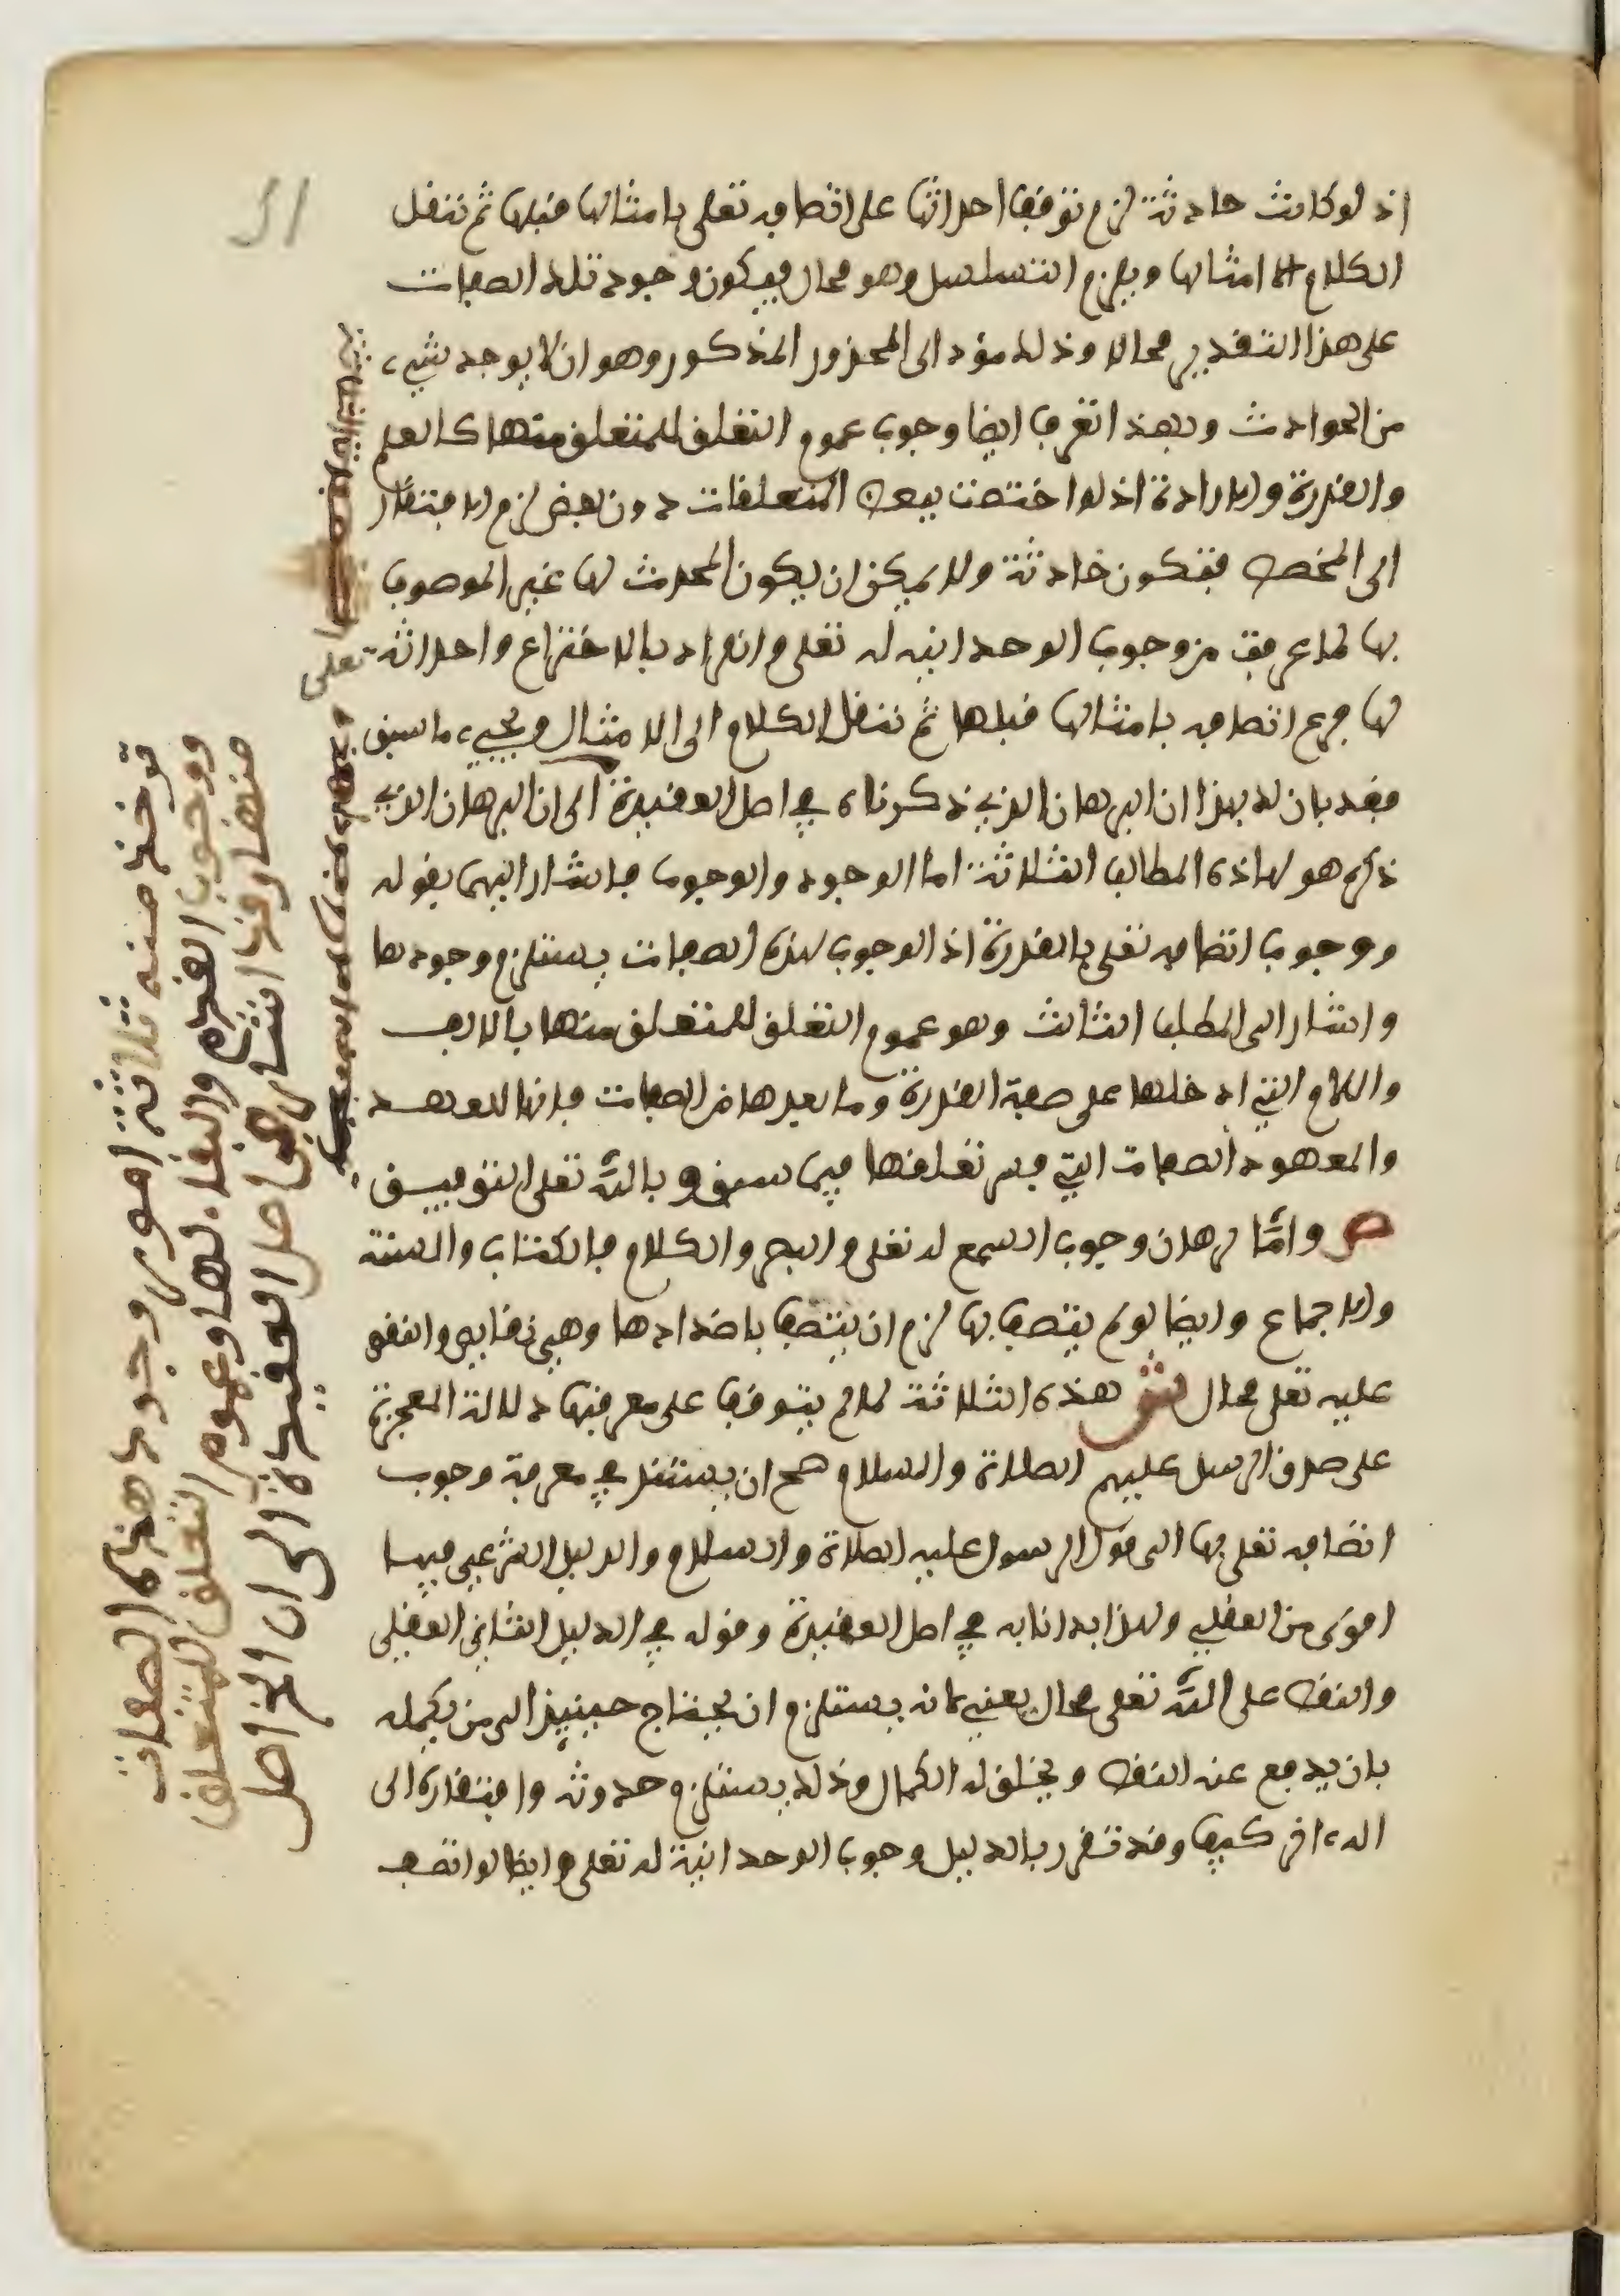 اذ لو كانت حادثة لزم توقف احداثها على اتصافه تعلى بامثالها قبلها ثم ننقل
الكلام الى امثالها ويلزم التسلسل وهو محال فيكون وجود تلك الصفات
على هذا التقدير محالا وذلك مؤد الى المحذور المذكور وهو ان لا يوجد شيء
من الحوادث وبهذا تعرف ايضا وجوب عموم التعلق للمتعلق منها كالعلم
والقدرة والارادة اذ لو اختصت ببعض المتعلقات دون بعض لزم الافتقار
الى المخصص فتكون حادثة ولا يمكن ان يكون المحدث لها غير الموصوف
بها لما عرفت من وجوب الوحدانية له تعلى وانفراده بالاختراع واحداثه تعلى
لها فرع اتصافه بامثالها قبلها ثم ننقل الكلام الى الامثال ويجيء ما سبق
فقد بان لك بهذا ان البرهان الذي ذكرناه في اصل العقيدة الى ان البرهان الذي
ذكر هو لهاذه المطالب الثلاثة اما الوجود والوجوب فاشار اليهما بقوله
ووجوب اتصافه تعلى بالقدرة اذ الوجوب لهذه الصفات يستلزم وجودها
واشار الى المطلب الثالث وهو عموم التعلق للمتعلق منها بالالف
واللام التي ادخلها على صفة القدرة وما بعدها من الصفات فانها للعهد
والمعهود الصفات التي فسر تعلقها فيما سبق وبالله تعلى التوفيق
ص واما برهان وجوب السمع له تعلى والبصر والكلام فالكتاب والسنة
والاجماع وايضا لو لم يتصف بها لزم ان يتصف باضدادها وهي نقايص والنقص
عليه تعلى محال ش هذه الثلاثة لما لم يتوقف على معرفتها دلالة المعجزة
على صدق الرسل عليهم الصلاة والسلام صح ان يستند في معرفة وجوب
اتصافه تعلى بها الى قول الرسول عليه الصلاة والسلام والدليل الشرعي فيها
اقوى من العقلي ولهذا بدانا به في اصل العقيدة وقوله في الدليل الثاني العقلي
والنقص على الله تعلى محال يعني لانه يستلزم ان يحتاج حينيذ الى من يكمله
بان يدفع عنه النقص ويخلق له الكمال وذلك يستلزم حدوثه وافتقاره الى
اله ءاخر كيف وقد تقرر بالدليل وجوب الوحدانية له تعلى وايضا لو اتصف
توخذ منه ثلاثة امور وجود هذه الصفات
ووجوب القدم والبقاء لها وعموم التعلق للمتعلق
منها وقد اشار في اصل العقيدة الى ان الخ اصل